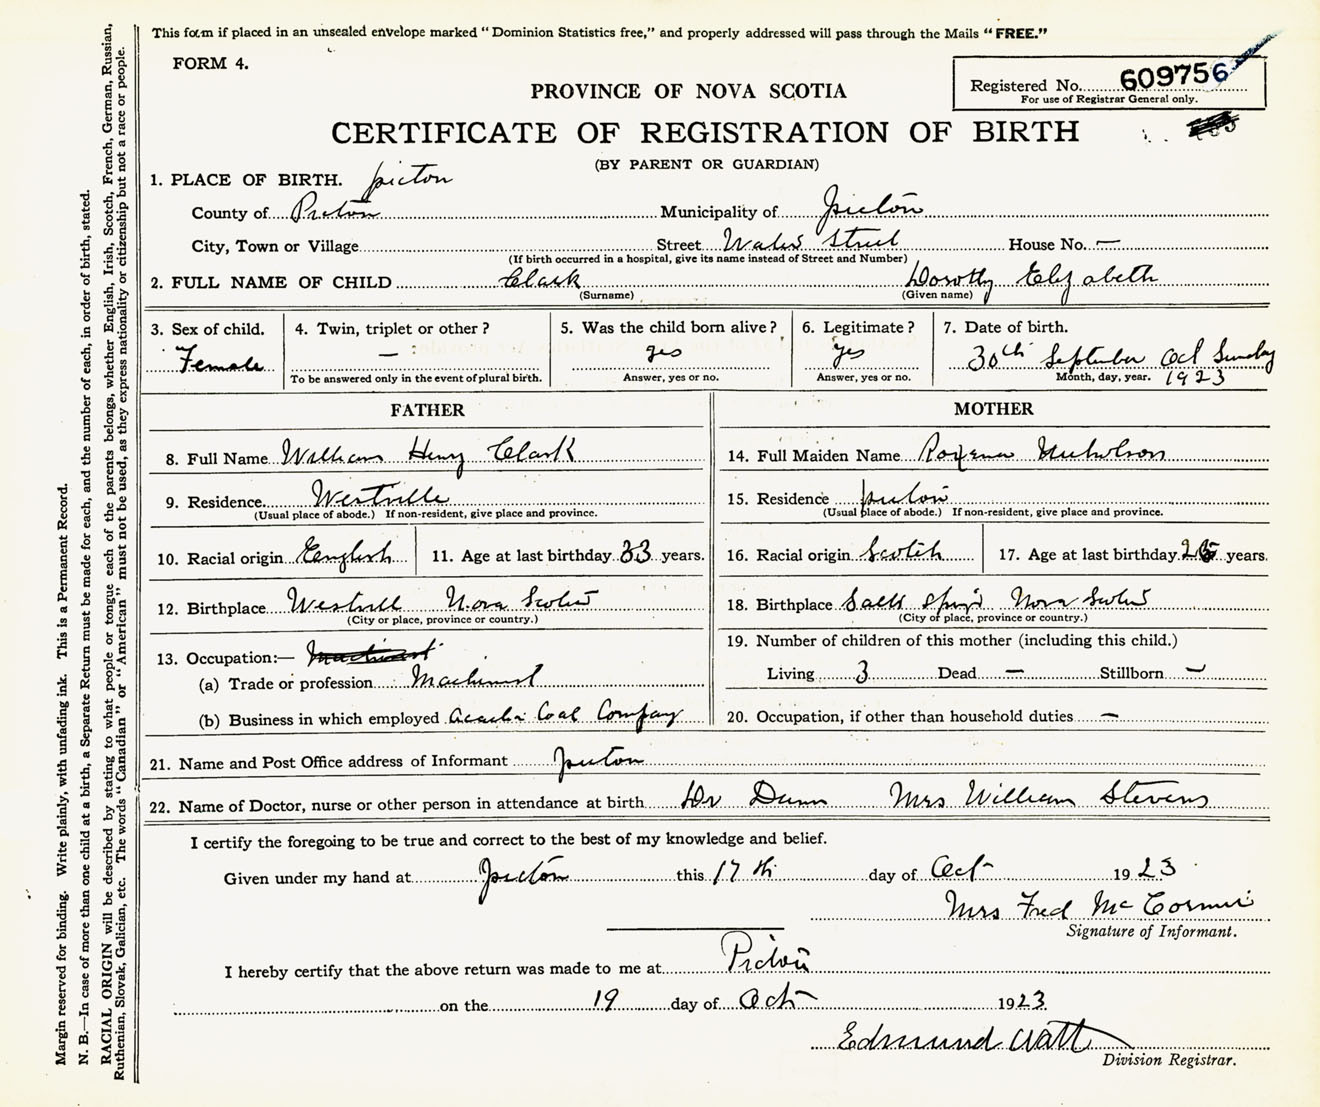 This form if placed in an unsealed envelope marked "Dominion Statistics free," and properly addressed will pass through the Mails "FREE."
FORM 4.
Registered No. 609756
For use of Registrar General only.
PROVINCE OF NOVA SCOTIA
CERTIFICATE OF REGISTRATION OF BIRTH
(BY PARENT OR GUARDIAN)
1. PLACE OF BIRTH. Picton
County of Picton Municipality of Picton
City, Town or Village Street Water Street House No. —
(If birth occurred in a hospital, give its name instead of Street and Number)
2. FULL NAME OF CHILD Clark Dorothy Elizabeth
(Surname) (Given name)
3. Sex of child. Female
4. Twin, triplet or other? —
To be answered only in the event of plural birth.
5. Was the child born alive? yes
Answer, yes or no.
6. Legitimate? yes
Answer, yes or no.
7. Date of birth.
30th September Sunday
Month, day, year. 1923
FATHER
8. Full Name William Henry Clark
9. Residence Westville
(Usual place of abode.) If non-resident, give place and province.
10. Racial origin English 11. Age at last birthday 33 years.
12. Birthplace Westville Nova Scotia
(City or place, province or country.)
13. Occupation:— Machinist
(a) Trade or profession Machinist
(b) Business in which employed Acadia Coal Company
MOTHER
14. Full Maiden Name Roxena Nicholson
15. Residence Picton
(Usual place of abode.) If non-resident, give place and province.
16. Racial origin Scotch 17. Age at last birthday years.
18. Birthplace Salt Springs Nova Scotia
(City or place, province or country.)
19. Number of children of this mother (including this child.)
Living 3 Dead — Stillborn —
20. Occupation, if other than household duties —
21. Name and Post Office address of Informant Picton
22. Name of Doctor, nurse or other person in attendance at birth Dr Dunn Mrs William Stevens
I certify the foregoing to be true and correct to the best of my knowledge and belief.
Given under my hand at Picton this 17th day of Oct 1923
Mrs Fred
Signature of Informant.
I hereby certify that the above return was made to me at Picton
on the 19 day of Oct 1923
Edmund Watt
Division Registrar.
Margin reserved for binding. Write plainly, with unfading ink. This is a Permanent Record.
N. B.—In case of more than one child at a birth, a Separate Return must be made for each, and the number of each, in order of birth, stated.
RACIAL ORIGIN will be described by stating to what people or tongue each of the parents belongs, whether English, Irish, Scotch, French, German, Russian,
Ruthenian, Slovak, Galician, etc. The words "Canadian" or "American" must not be used, as they express nationality or citizenship but not a race or people.